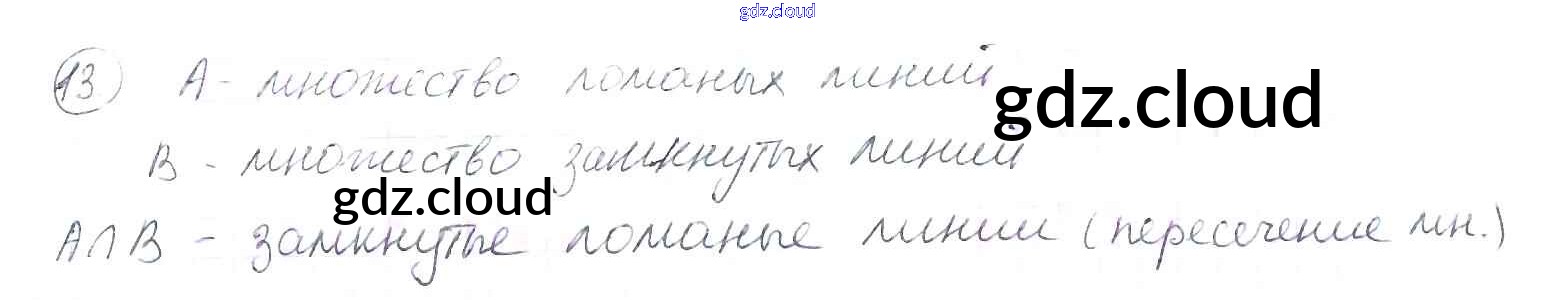 gdz.cloud
13 А - множество ломаных линий
gdz.cloud
В - множество замкнутых линий
gdz.cloud
А∩В - замкнутые ломаные линии (пересечение мн.)